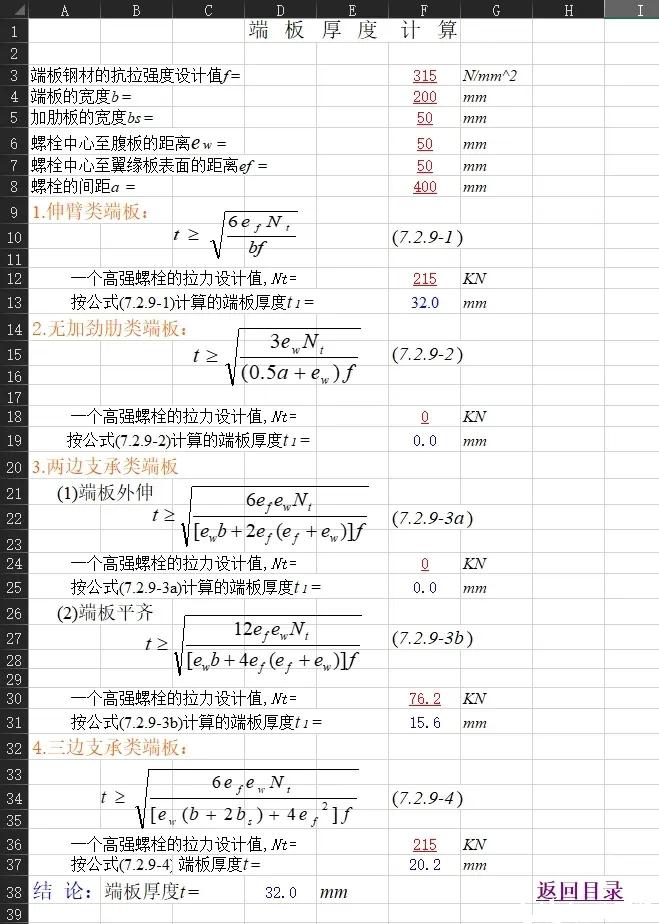 A B C D E F G H I
1 端 板 厚 度 计 算
2
3 端板钢材的抗拉强度设计值f= 315 N/mm^2
4 端板的宽度b= 200 mm
5 加肋板的宽度bs= 50 mm
6 螺栓中心至腹板的距离ew= 50 mm
7 螺栓中心至翼缘板表面的距离ef = 50 mm
8 螺栓的间距a = 400 mm
9 1.伸臂类端板：
10 t ≥ √(6 e_f N_t / bf) (7.2.9-1)
11
12 一个高强螺栓的拉力设计值,Nt= 215 KN
13 按公式(7.2.9-1)计算的端板厚度t1= 32.0 mm
14 2.无加劲肋类端板：
15 t ≥ √(3e_w N_t / (0.5a + e_w) f) (7.2.9-2)
16
17
18 一个高强螺栓的拉力设计值,Nt= 0 KN
19 按公式(7.2.9-2)计算的端板厚度t1= 0.0 mm
20 3.两边支承类端板
21 (1)端板外伸
22 t ≥ √(6e_f e_w N_t / [e_w b + 2e_f (e_f + e_w)]f) (7.2.9-3a)
23
24 一个高强螺栓的拉力设计值,Nt= 0 KN
25 按公式(7.2.9-3a)计算的端板厚度t1= 0.0 mm
26 (2)端板平齐
27 t ≥ √(12e_f e_w N_t / [e_w b + 4e_f (e_f + e_w)]f) (7.2.9-3b)
28
29
30 一个高强螺栓的拉力设计值,Nt= 76.2 KN
31 按公式(7.2.9-3b)计算的端板厚度t1= 15.6 mm
32 4.三边支承类端板：
33
34 t ≥ √(6 e_f e_w N_t / [e_w (b + 2b_s) + 4e_f^2] f) (7.2.9-4)
35
36 一个高强螺栓的拉力设计值,Nt= 215 KN
37 按公式(7.2.9-4) 端板厚度t= 20.2 mm
38 结 论：端板厚度t= 32.0 mm 返回目录
39